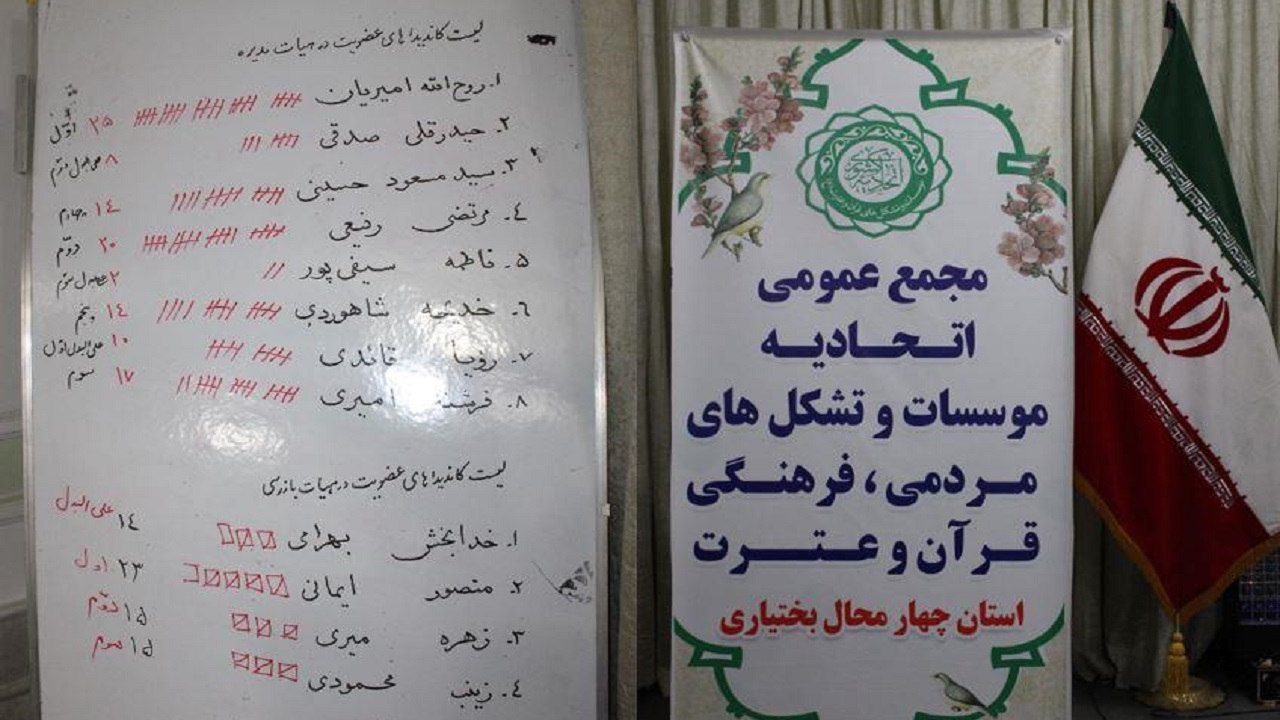 لیست کاندیداهای عضویت در هیات مدیره
۱. روح الله امیریان ۲۵ اوّل
۲. حیدرقلی صدقی ۸ علی البدل دوّم
۳. سید مسعود حسینی ۱۴ چهارم
۴. مرتضی رفیعی ۲۰ دوّم
۵. فاطمه سیفی پور ۲ علی البدل سوّم
۶. خدیجه شاهوردی ۱۴ پنجم
۷. رویا قائدی ۱۰ علی البدل اوّل
۸. فرشته امیری ۱۷ سوم
لیست کاندیداهای عضویت در هیات بازرسی
۱. خدابخش بهرامی ۱۴ علی البدل
۲. منصور ایمانی ۲۳ اول
۳. زهره میری ۱۵ دوّم
۴. زینب محمودی ۱۵ سوم
اتحادیه کشوری
مجمع عمومی
اتحادیه
موسسات و تشکل های
مردمی ، فرهنگی
قرآن و عترت
استان چهار محال بختیاری